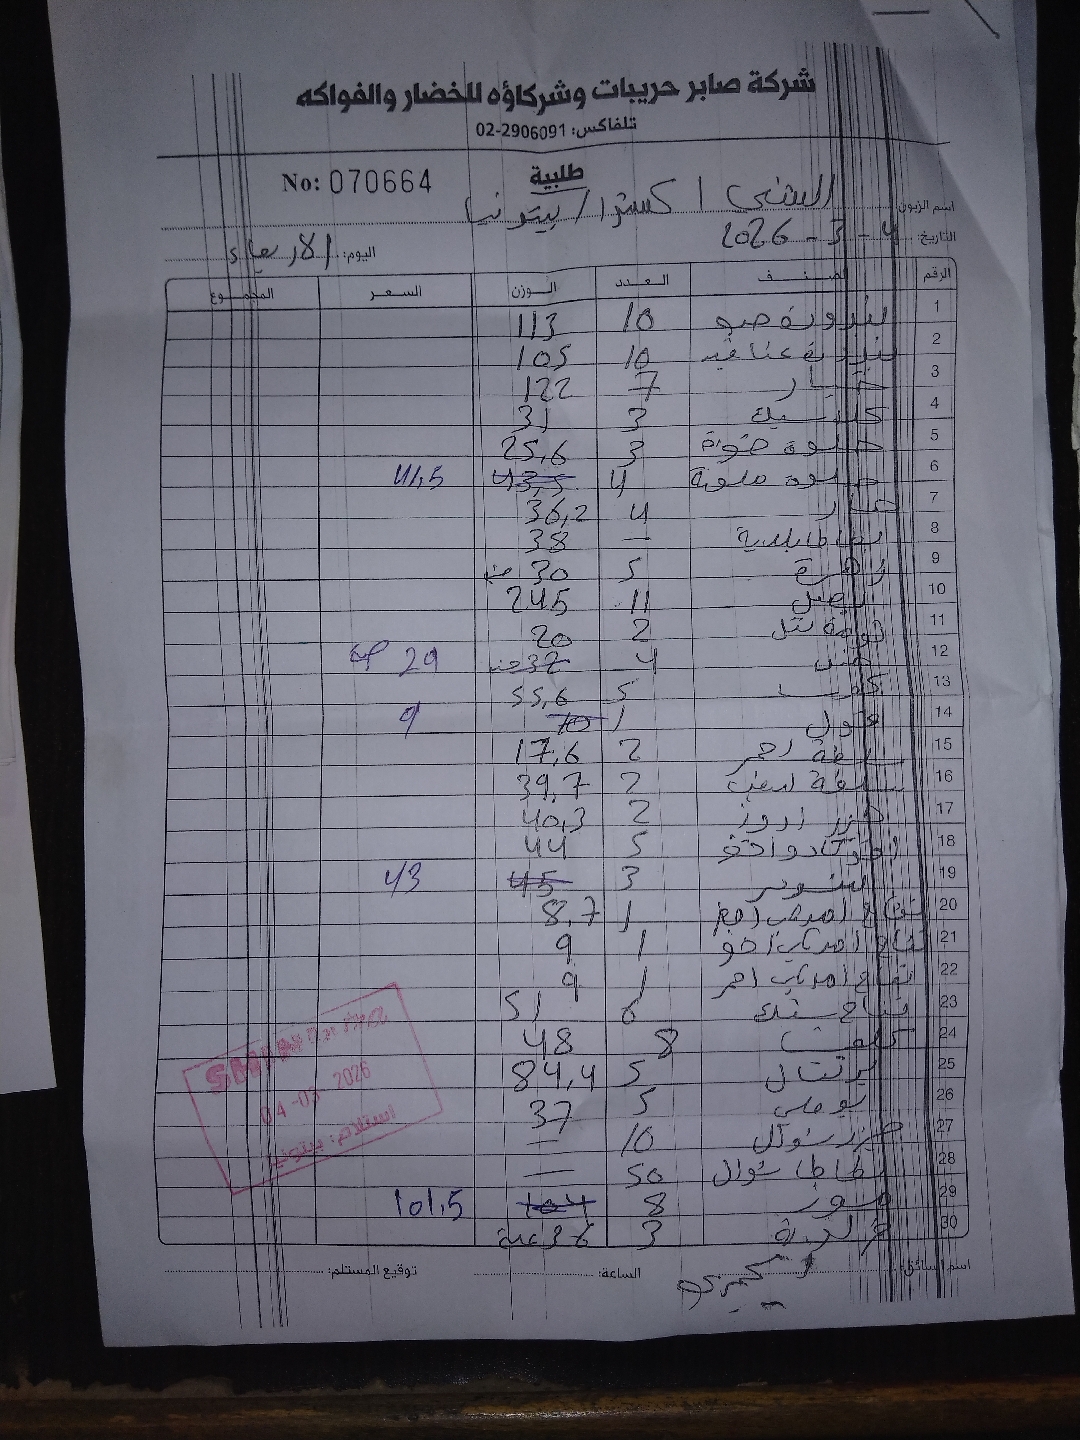 شركة صابر حريبات وشركاؤه للخضار والفواكه
تلفاكس: 02-2906091
طلبية
No: 070664
اسم الزبون: الشني / اكسترا / بيتونيا
التاريخ: 4 - 3 - 2026 اليوم: الاربعاء
الرقم الصنف العدد الوزن السعر المجموع
1 بندورة حبو 10 113
2 بندورة عناقيد 10 105
3 خيار 7 122
4 كلاسيك 3 31
5 حلوة 3 25,6
6 حلوة ملونة 4 43,5 41,5
7 حار 4 36,2
8 بطاطا بلدية — 38
9 زهرة 5 30
10 بصل 11 245
11 ثومة شتل 2 20
12 خس 4 37 29
13 كوسا 5 55,6
14 فول 1 10 9
15 ملفوف احمر 2 17,6
16 ملفوف ابيض 2 39,7
17 جزر 2 40,3
18 افوكادو 5 44
19 3 45 43
20 تفاح 1 8,7
21 تفاح 1 9
22 تفاح احمر 1 9
23 تفاح 6 51
24 كلمنتينا 8 48
25 برتقال 5 84,4
26 بوملي 5 37
27 جزر شوال 10 —
28 بطاطا شوال 50 —
29 موز 8 104 101,5
30 3 36 علبة
اسم السائق: الساعة: توقيع المستلم:
04-03-2026
استلام: بيتونيا